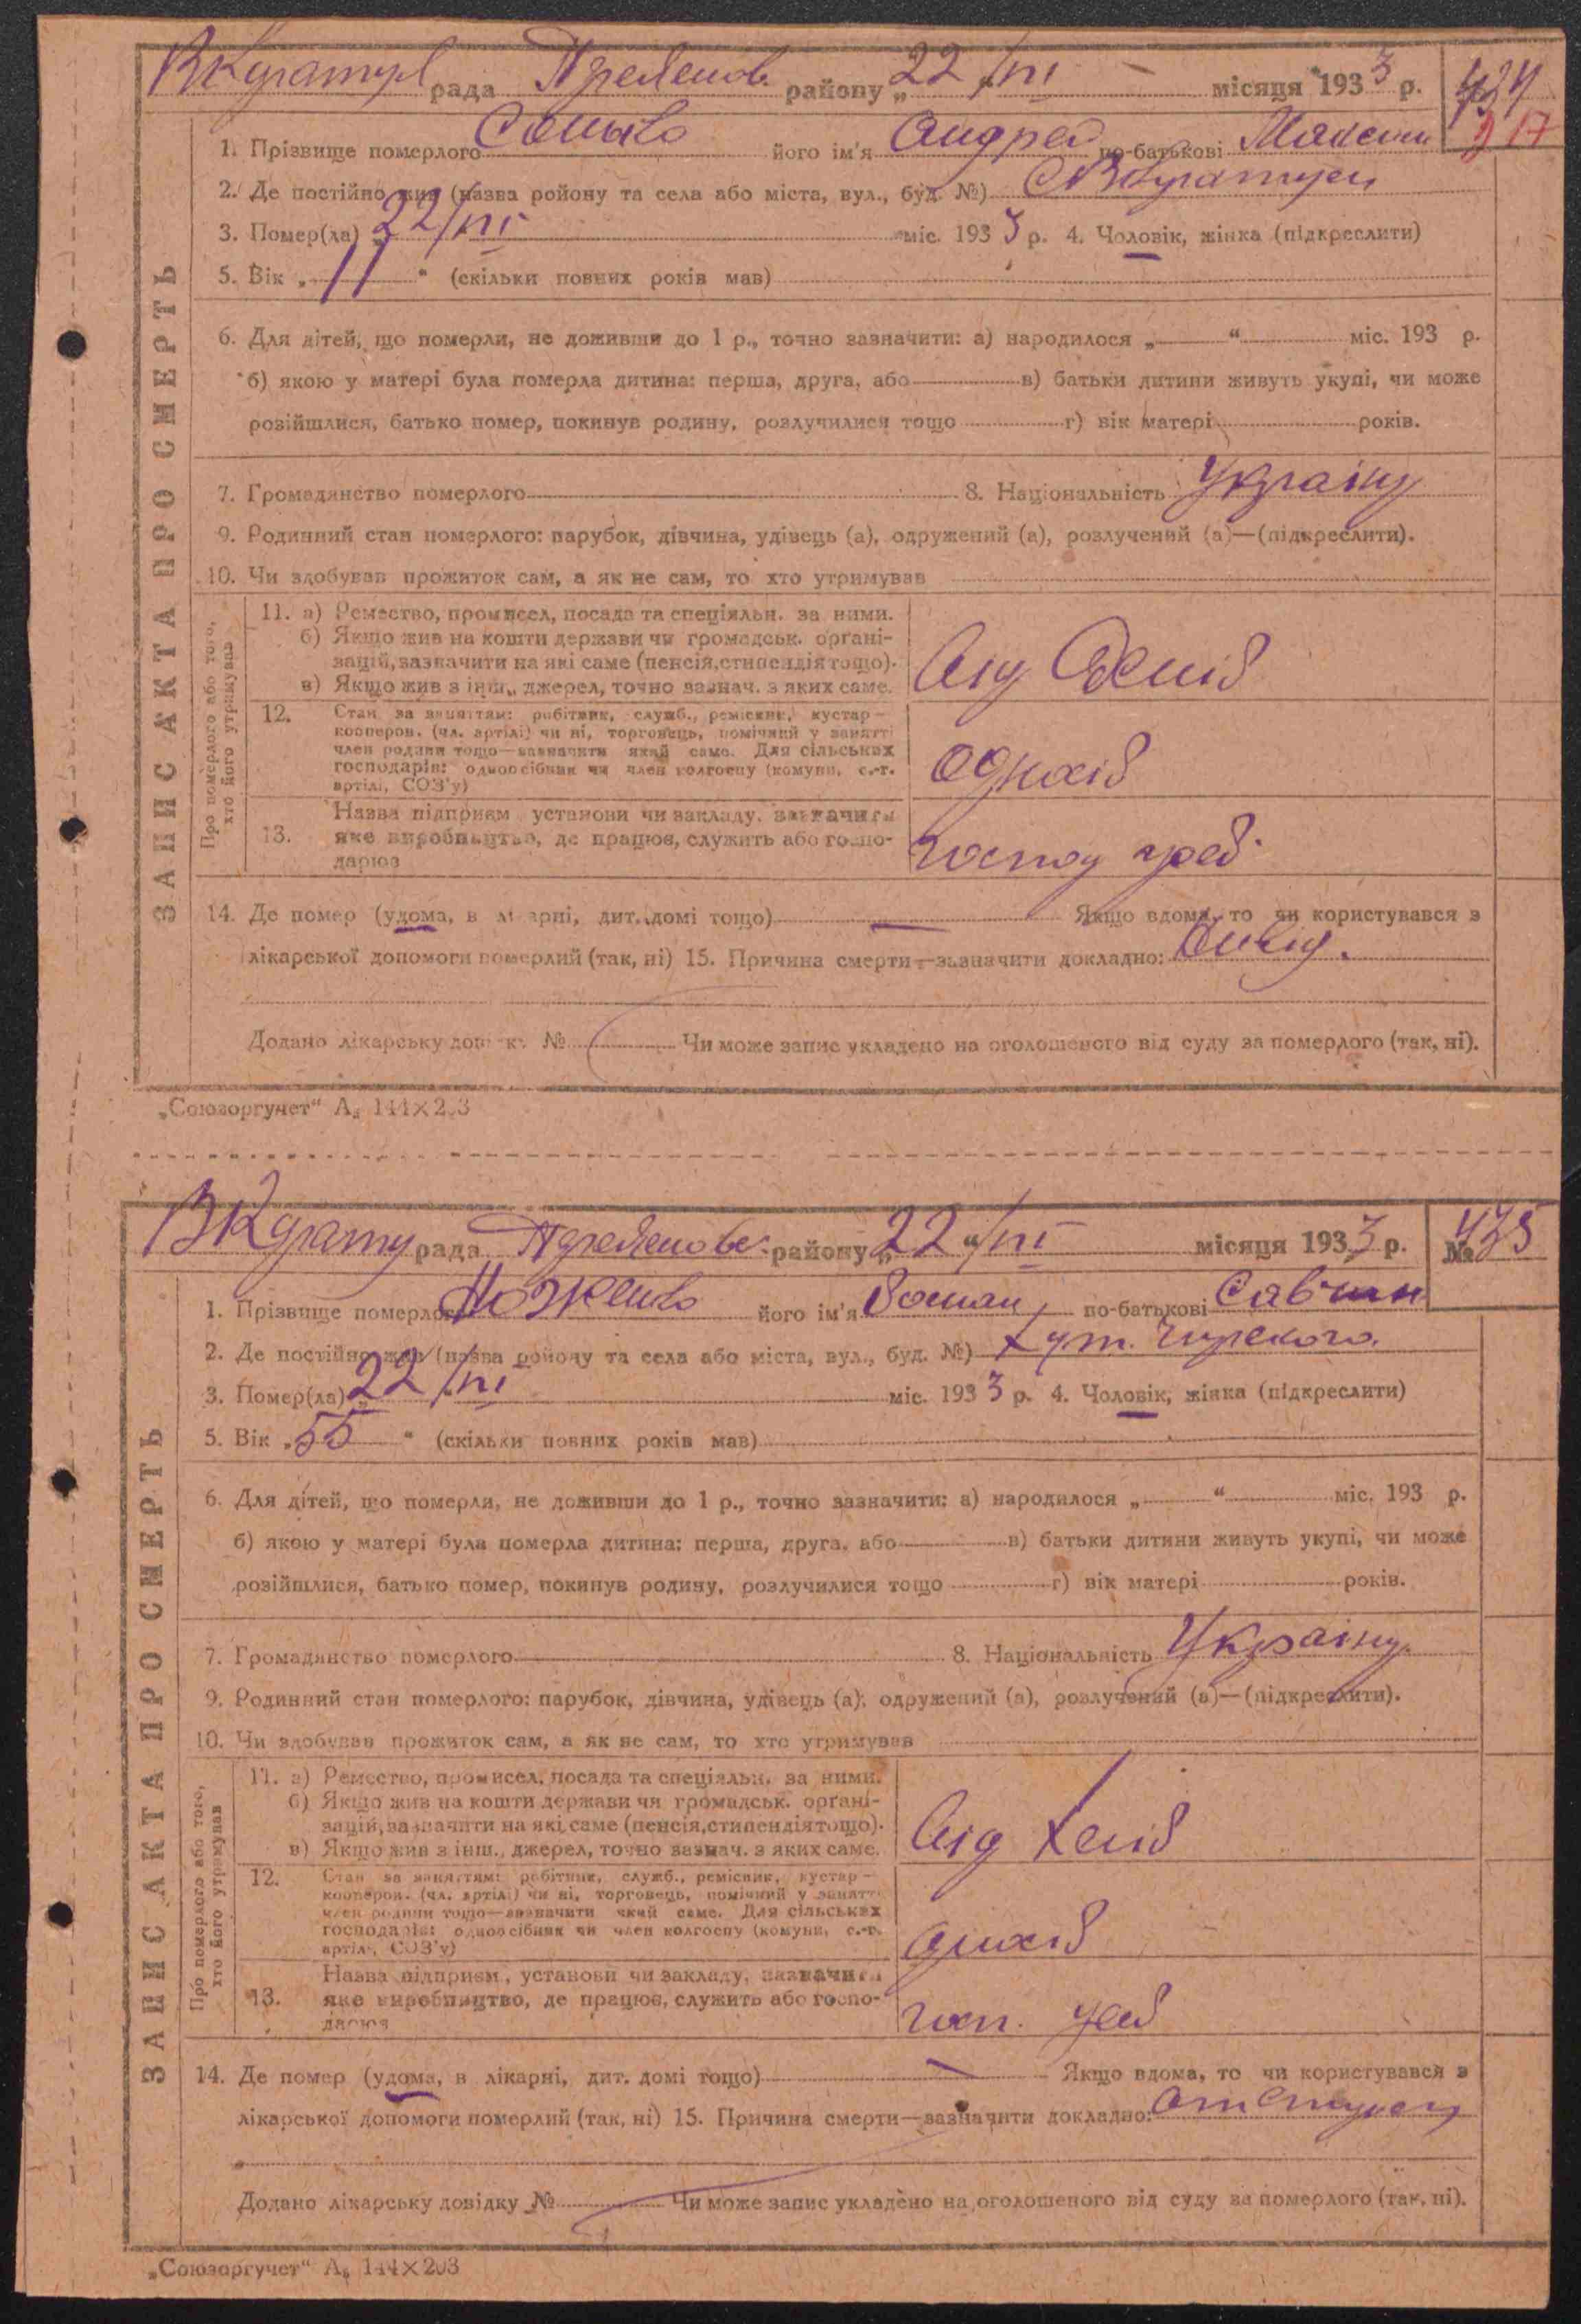 рада району „22“ /VI місяця 1933 р. 434
217
1. Прізвище померлого його ім'я Андрей по-батькові
2. Де постійно жив (назва ройону та села або міста, вул., буд. №)
3. Помер(ла) „22/VI міс. 1933 р. 4. Чоловік, жінка (підкреслити)
5. Вік „11“ (скільки повних років мав)
6. Для дітей, що померли, не доживши до 1 р., точно зазначити: а) народилося „ “ міс. 193 р.
б) якою у матері була померла дитина: перша, друга, або в) батьки дитини живуть укупі, чи може
розійшлися, батько помер, покинув родину, розлучилися тощо г) вік матері років.
7. Громадянство померлого 8. Національність Україн
9. Родинний стан померлого: парубок, дівчина, удівець (а), одружений (а), розлучений (а)—(підкреслити).
10. Чи здобував прожиток сам, а як не сам, то хто утримував
ЗАПИС АКТА ПРО СМЕРТЬ
Про померлого або того, хто його утримував
11. а) Ремество, промисел, посада та спеціяльн. за ними.
б) Якщо жив на кошти держави чи громадськ. органі-
зацій, зазначити на які саме (пенсія, стипендія тощо).
в) Якщо жив з інш., джерел, точно зазнач. з яких саме.
12. Стан за заняттям: робітник, служб., ремісник, кустар—
кооперов. (чл. артілі) чи ні, торговець, помічний у занятті
член родини тощо—зазначити який саме. Для сільських
господарів: одноосібник чи член колгоспу (комуни, с.-г.
артілі, СОЗ'у)
13. Назва підприєм. установи чи закладу, зазначити
яке виробництво, де працює, служить або госпо-
дарює
14. Де помер (удома, в лікарні, дит. домі тощо) — Якщо вдома, то чи користувався з
лікарської допомоги померлий (так, ні) 15. Причина смерти—зазначити докладно:
Додано лікарську довідку № Чи може запис укладено на оголошеного від суду за померлого (так, ні).
„Союзоргучет“ А₅ 144×203
рада району „22“ /VI місяця 1933 р. № 435
1. Прізвище померлого його ім'я Роман по-батькові Савчин
2. Де постійно жив (назва ройону та села або міста, вул., буд. №) Хут.
3. Помер(ла) „22/VI міс. 1933 р. 4. Чоловік, жінка (підкреслити)
5. Вік „55“ (скільки повних років мав)
6. Для дітей, що померли, не доживши до 1 р., точно зазначити: а) народилося „ “ міс. 193 р.
б) якою у матері була померла дитина: перша, друга, або в) батьки дитини живуть укупі, чи може
розійшлися, батько помер, покинув родину, розлучилися тощо г) вік матері років.
7. Громадянство померлого 8. Національність Україн
9. Родинний стан померлого: парубок, дівчина, удівець (а), одружений (а), розлучений (а)—(підкреслити).
10. Чи здобував прожиток сам, а як не сам, то хто утримував
ЗАПИС АКТА ПРО СМЕРТЬ
Про померлого або того, хто його утримував
11. а) Ремество, промисел, посада та спеціяльн. за ними.
б) Якщо жив на кошти держави чи громадськ. органі-
зацій, зазначити на які саме (пенсія, стипендія тощо).
в) Якщо жив з інш., джерел, точно зазнач. з яких саме.
12. Стан за заняттям: робітник, служб., ремісник, кустар—
кооперов. (чл. артілі) чи ні, торговець, помічний у занятті
член родини тощо—зазначити який саме. Для сільських
господарів: одноосібник чи член колгоспу (комуни, с.-г.
артілі, СОЗ'у)
13. Назва підприєм, установи чи закладу, зазначити
яке виробництво, де працює, служить або госпо-
дарює
госп.
14. Де помер (удома, в лікарні, дит. домі тощо) — Якщо вдома, то чи користувався з
лікарської допомоги померлий (так, ні) 15. Причина смерти—зазначити докладно:
Додано лікарську довідку № Чи може запис укладено на оголошеного від суду за померлого (так, ні).
„Союзоргучет“ А₅ 144×203